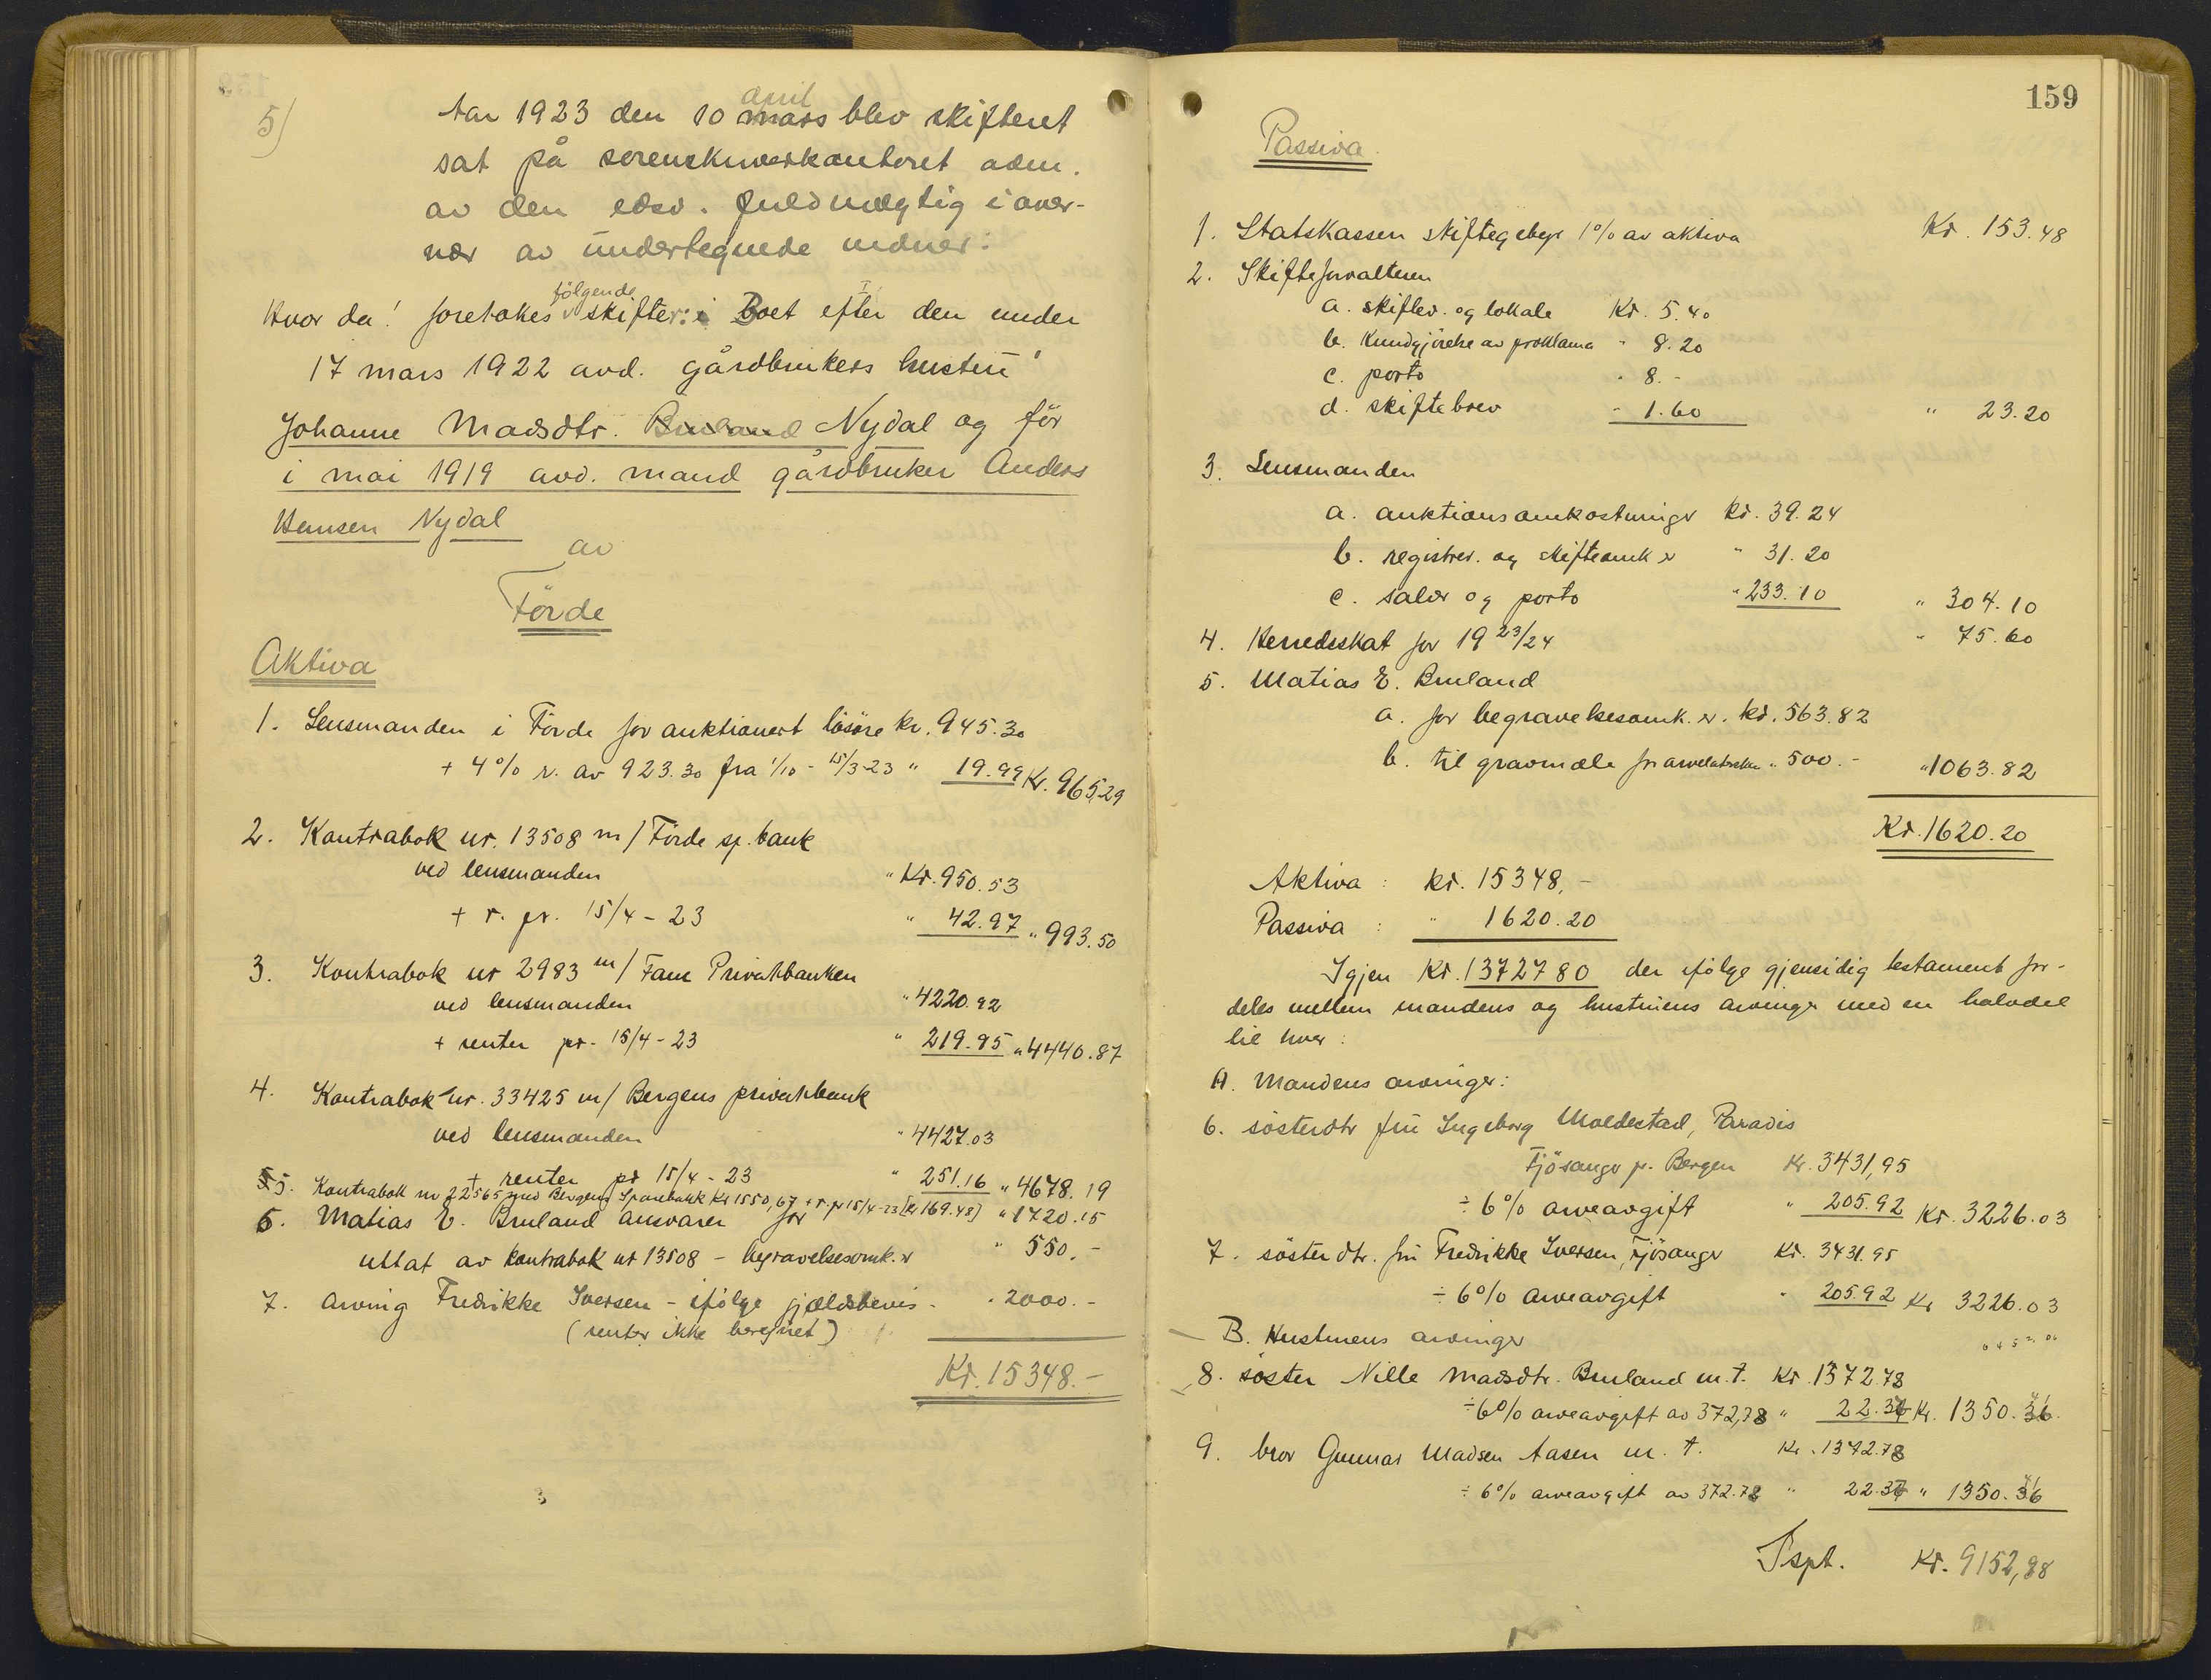 5)
Aar 1923 den 10 april mars blev skifteret
sat på sorenskriverkontoret adm.
av den edsv. fuldmægtig i over-
vær av undertegnede vidner:
Hvor da! foretokes følgende skifter: i Boet efter den under
17 mars 1922 avd. gårdbrukers hustru
Johanne Madsdtr. Bruland Nydal og før
i mai 1919 avd. mand gårdbruker Anders
Hansen Nydal
av
Förde
Aktiva
1. Lensmanden i Förde for auktionert lösöre kr. 945.30
+ 4% r. av 923.30 fra 1/10 - 15/3-23 " 19.99 Kr. 965.29
2. Kontrabok nr. 13508 m/ Förde sp. bank
ved lensmanden " Kr. 950.53
+ r. pr. 15/4 - 23 " 42.97 " 993.50
3. Kontrabok nr 2983 m/ Fane Privatbanken
ved lensmanden " 4220.92
+ renter pr. 15/4 - 23 " 219.95 " 4440.87
4. Kontrabok nr. 33425 m/ Bergens privatbank
ved lensmanden " 4427.03
+ renter pr 15/4 - 23 " 251.16 " 4678.19
5. Kontrabok nr 22565 med Bergens Sparebank Kr 1550,67 + r. pr 15/4-23 [kr 169.48] " 1720.15
6. Matias E. Bruland ansvarer for
uttat av kontrabok nr 13508 - begravelsesomk.er " 550.-
7. Arving Fredrikke Iversen - ifölge gjældsbevis - " 2000.-
(renter ikke beregnet)
Kr. 15348.-
159
Passiva
1. Statskassen skiftegebyr 1% av aktiva Kr. 153.48
2. Skifteforvalteren
a. skiftev. og lokale Kr. 5.40
b. Kundgjörelse av proklama " 8.20
c. porto " 8.-
d. skiftebrev " 1.60 " 23.20
3. Lensmanden
a. auktionsomkostninger kr. 39.24
b. registrer. og skifteomk.er " 31.20
c. salær og porto " 233.10 " 304.10
4. Herredsskat for 1923/24 " 75.60
5. Matias E. Bruland
a. for begravelsesomk.er. kr. 563.82
b. til gravmæle for arvelaterne " 500.- " 1063.82
Kr. 1620.20
Aktiva : kr. 15348,-
Passiva : " 1620.20
Igjen Kr. 13727 80 der ifölge gjensidig testament for-
deles mellem mandens og hustruens arvinger med en halvdel
til hver:
A. Mandens arvinger:
6. sösterdtr fru Ingeborg Moldestad, Paradis
Fjösanger pr. Bergen Kr. 3431,95
÷ 6% arveavgift " 205.92 Kr. 3226.03
7. sösterdtr. fru Fredrikke Iversen, Fjösanger Kr. 3431.95
÷ 6% arveavgift " 205.92 Kr 3226.03
B. Hustruens arvinger 6452.06
8. söster Nille Madsdtr. Bruland m.t. Kr 1372.78
÷ 6% arveavgift av 372,78 " 22.37 Kr. 1350.41
9. bror Gunnar Madsen Aasen m. t. Kr. 1372.78
÷ 6% arveavgift av 372.78 " 22.37 " 1350.41
Tspt. Kr. 9152,88